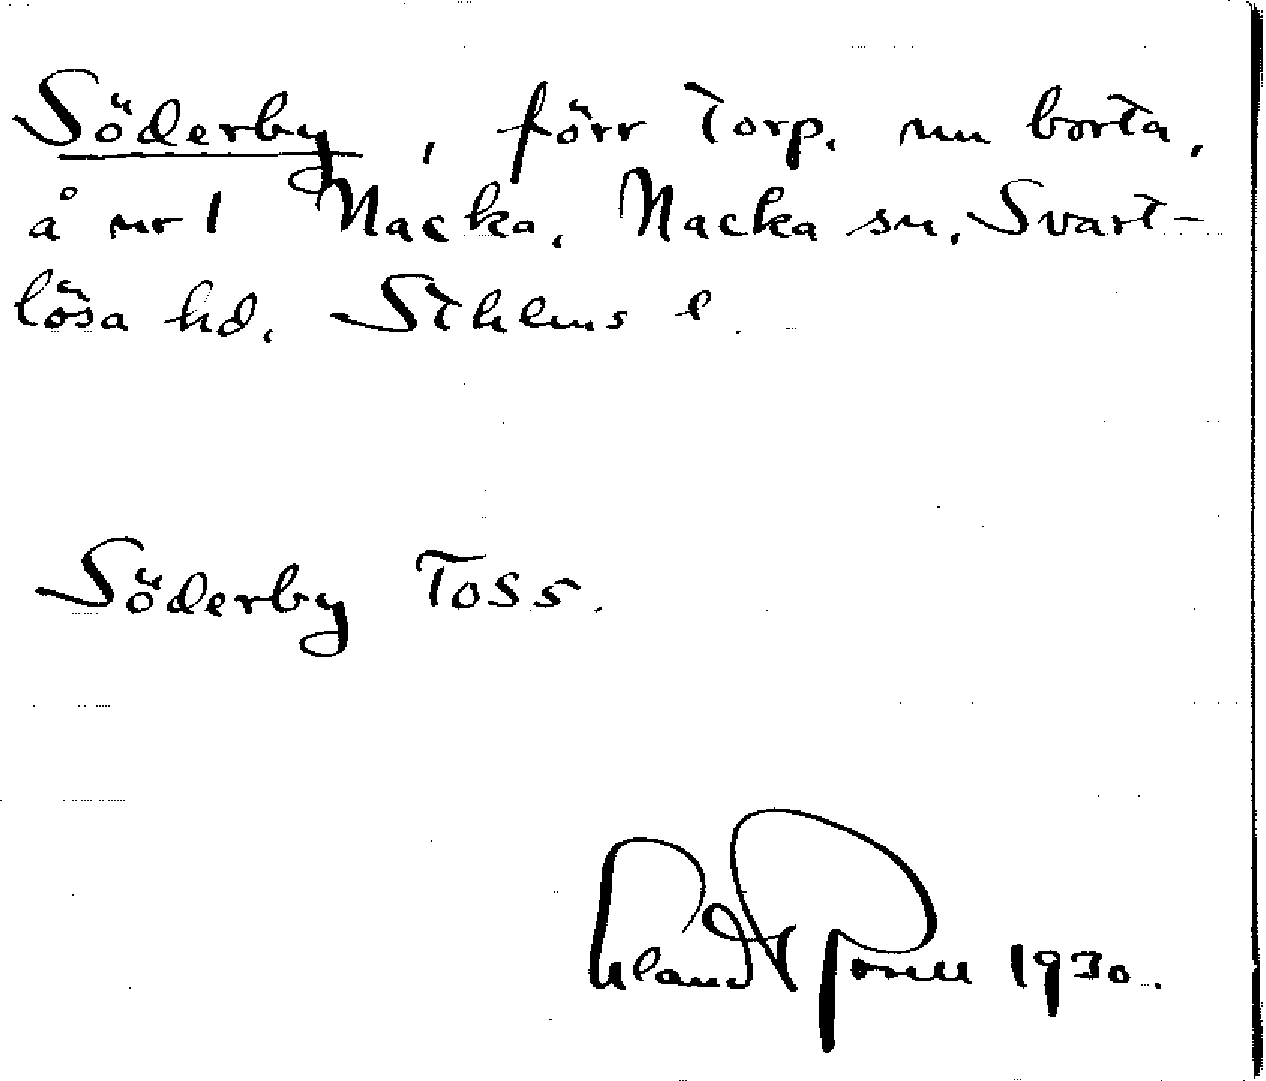 Söderby, förr torp, nu borta,
å nr 1 Nacka, Nacka sn, Svart-
lösa hd, Sthlms l.
Söderby Toss.
1930.